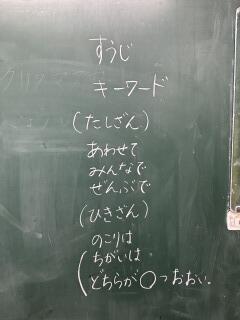 すうじ
キーワード
(たしざん)
あわせて
みんなで
ぜんぶで
(ひきざん)
のこりは
ちがいは
どちらが〇つおおい.